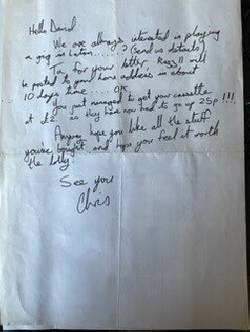 Hello David
We are always interested in playing
a gig in Luton ..... ? (send us details)
Ta for your letter, Razz 11 will
be posted to your home address in about
10 days time .... OK
You just managed to get your cassette
at £2 as they have now had to go up 25p !!!
Anyway hope you like all the stuff
you've bought and hope you feel it worth
the lolly.
See you
Chris